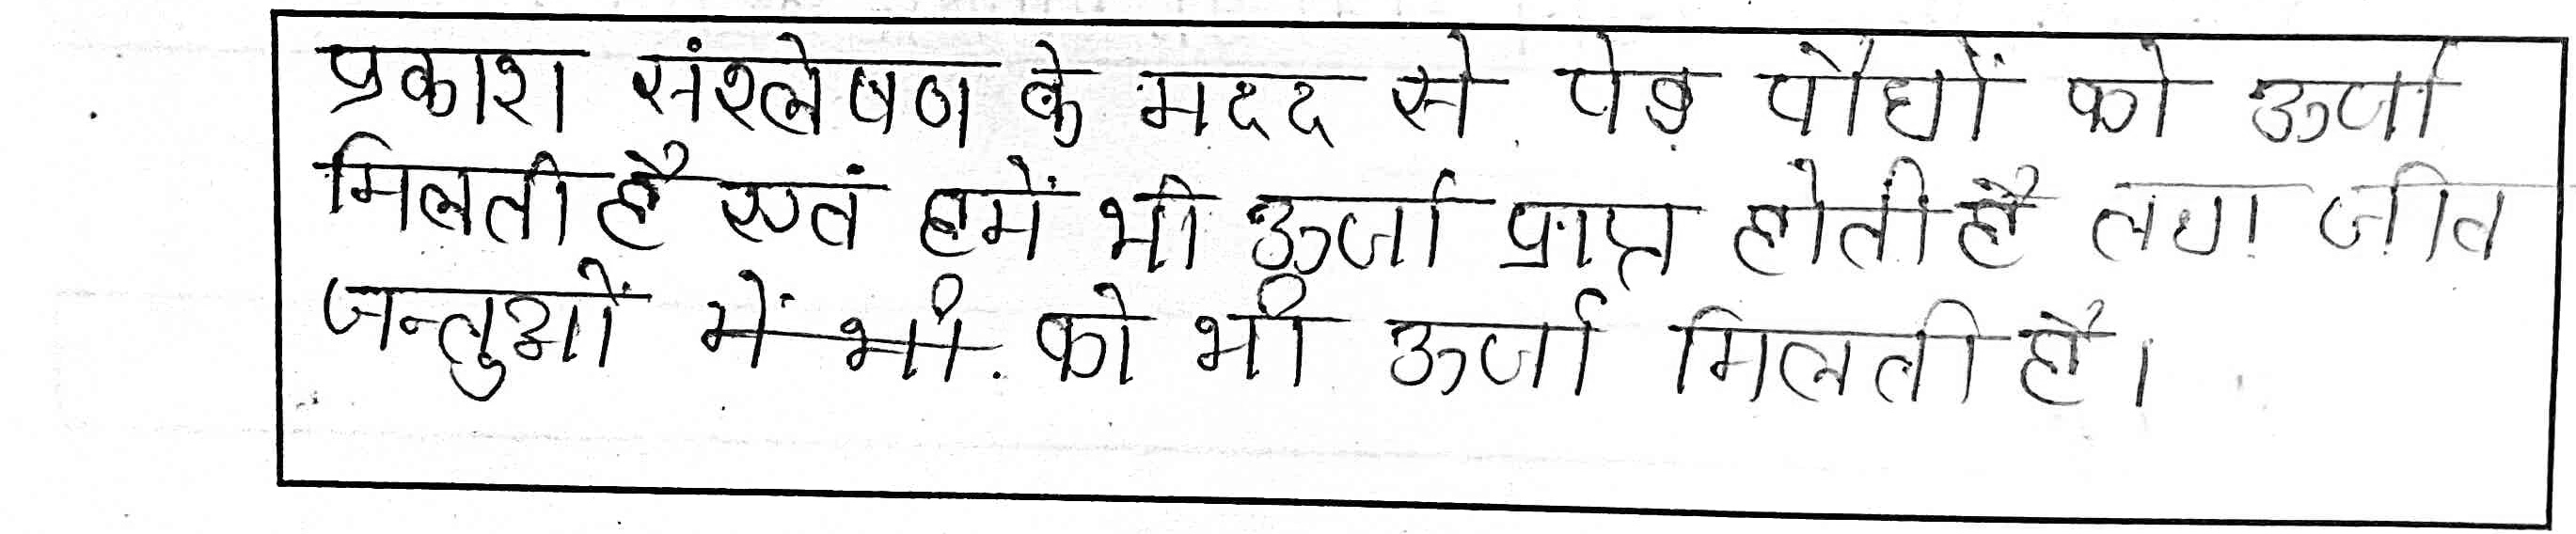 प्रकाश संश्लेषण के मदद से पेड़ पौधों को ऊर्जा
मिलती है एवं हमें भी ऊर्जा प्राप्त होती है तथा जीव
जन्तुओं में भी को भी ऊर्जा मिलती है।